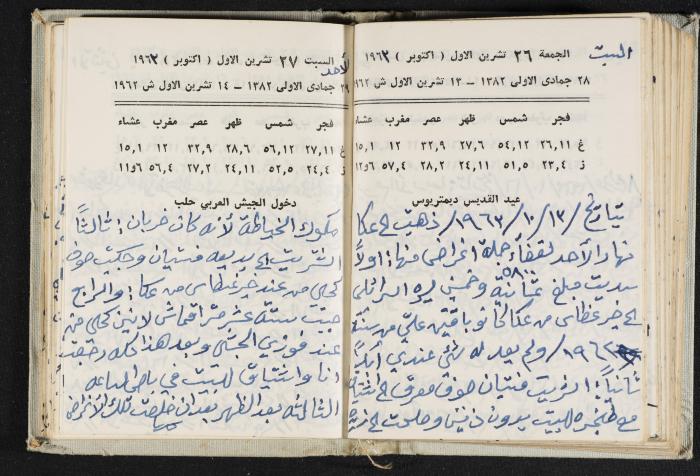 السبت
الجمعة ٢٦ تشرين الاول ( اكتوبر ) ١٩٦٣
٢٨ جمادى الاولى ١٣٨٢ – ١٣ تشرين الاول ش ١٩٦٢
فجر شمس ظهر عصر مغرب عشاء
غ ٢٦,١١ ٥٤,١٢ ٢٧,٦ ٣٢,٩ ١٢ ١٥,١
ز ٢٣,٤ ٥١,٥ ٢٤,١١ ٢٨,٢ ٥٧,٤ ٦و١٢
عيد القديس ديمتريوس
بتاريخ ١٢/١٠/١٩٦٣ ذهبت الى عكا
نهار الأحد لقضاء جملة اغراض منها: اولاً
سديت مبلغ ثمانية وخمسين ليره اسرائيلي
٥٨٠٠
الى خير غطاس من عكا كانو باقين عليّ من سنة
١٩٦٢ ولم يعد له شئ عندي أبداً
ثانياً: اشتريت فتيان صوف معرق
مع طنجره للبيت بدون ذنين
الأحد
السبت ٢٧ تشرين الاول ( اكتوبر ) ١٩٦٣
٢٩ جمادى الاولى ١٣٨٢ – ١٤ تشرين الاول ش ١٩٦٢
فجر شمس ظهر عصر مغرب عشاء
غ ٢٧,١١ ٥٦,١٢ ٢٨,٦ ٣٢,٩ ١٢ ١٥,١
ز ٢٤,٤ ٥٢,٥ ٢٤,١١ ٢٧,٢ ٥٦,٤ ٦و١١
دخول الجيش العربي حلب
مكوك الخياطة لأنه كان خربان: ثالثاً
اشتريت الى بديعه فستان وجكيت صوف
كحلي من عند خير غطاس من عكا: والرابع
جبت ستة عشر متر اقماش لانين كحلي من
عند فوزي الحبشي وبعد هذا كله رجعت
انا واشتياق للبيت في باص الساعه
الثالثه بعد الظهر بعد ان خلصت تلك الأغراض